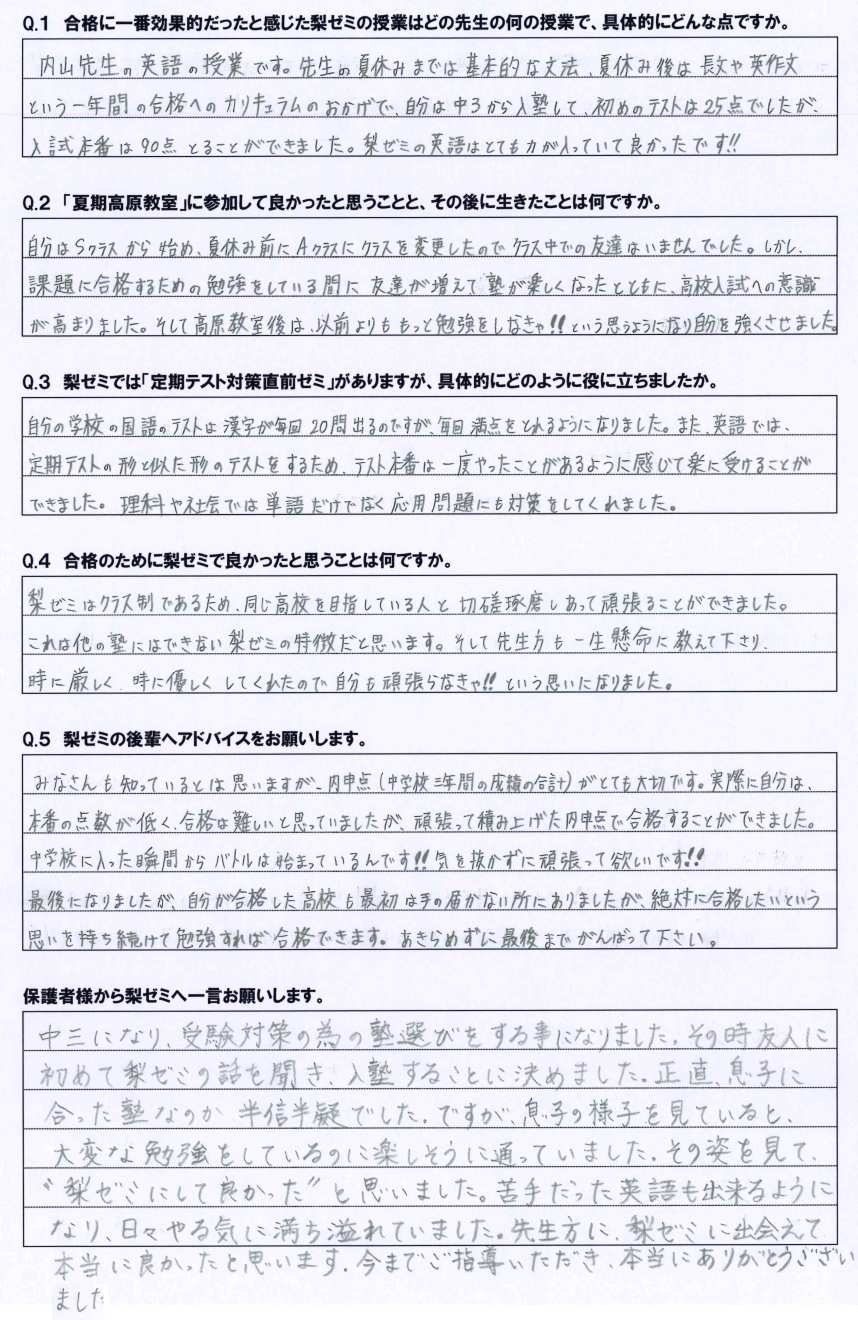 Q.1 合格に一番効果的だったと感じた梨ゼミの授業はどの先生の何の授業で、具体的にどんな点ですか。
内山先生の英語の授業です。先生の夏休みまでは基本的な文法、夏休み後は長文や英作文
という一年間の合格へのカリキュラムのおかげで、自分は中3から入塾して、初めのテストは25点でしたが、
入試本番は90点とることができました。梨ゼミの英語はとても力が入っていて良かったです!!
Q.2 「夏期高原教室」に参加して良かったと思うことと、その後に生きたことは何ですか。
自分はSクラスから始め、夏休み前にAクラスにクラスを変更したのでクラス中での友達はいませんでした。しかし、
課題に合格するための勉強をしている間に友達が増えて塾が楽しくなったとともに、高校入試への意識
が高まりました。そして高原教室後は、以前よりももっと勉強をしなきゃ!!という思うようになり自分を強くさせました。
Q.3 梨ゼミでは「定期テスト対策直前ゼミ」がありますが、具体的にどのように役に立ちましたか。
自分の学校の国語のテストは漢字が毎回20問出るのですが、毎回満点をとれるようになりました。また、英語では、
定期テストの形と似た形のテストをするため、テスト本番は一度やったことがあるように感じて楽に受けることが
できました。理科や社会では単語だけでなく応用問題にも対策をしてくれました。
Q.4 合格のために梨ゼミで良かったと思うことは何ですか。
梨ゼミはクラス制であるため、同じ高校を目指している人と切磋琢磨しあって頑張ることができました。
これは他の塾にはできない梨ゼミの特徴だと思います。そして先生方も一生懸命に教えて下さり、
時に厳しく、時に優しくしてくれたので自分も頑張らなきゃ!!という思いになりました。
Q.5 梨ゼミの後輩へアドバイスをお願いします。
みなさんも知っているとは思いますが、内申点(中学校三年間の成績の合計)がとても大切です。実際に自分は、
本番の点数が低く、合格は難しいと思っていましたが、頑張って積み上げた内申点で合格することができました。
中学校に入った瞬間からバトルは始まっているんです!!気を抜かずに頑張って欲しいです!!
最後になりましたが、自分が合格した高校も最初は手の届かない所にありましたが、絶対に合格したいという
思いを持ち続けて勉強すれば合格できます。あきらめずに最後までがんばって下さい。
保護者様から梨ゼミへ一言お願いします。
中三になり、受験対策の為の塾選びをする事になりました。その時友人に
初めて梨ゼミの話を聞き、入塾することに決めました。正直、息子に
合った塾なのか半信半疑でした。ですが、息子の様子を見ていると、
大変な勉強をしているのに楽しそうに通っていました。その姿を見て、
"梨ゼミにして良かった"と思いました。苦手だった英語も出来るように
なり、日々やる気に満ち溢れていました。先生方に、梨ゼミに出会えて
本当に良かったと思います。今までご指導いただき、本当にありがとうござい
ました